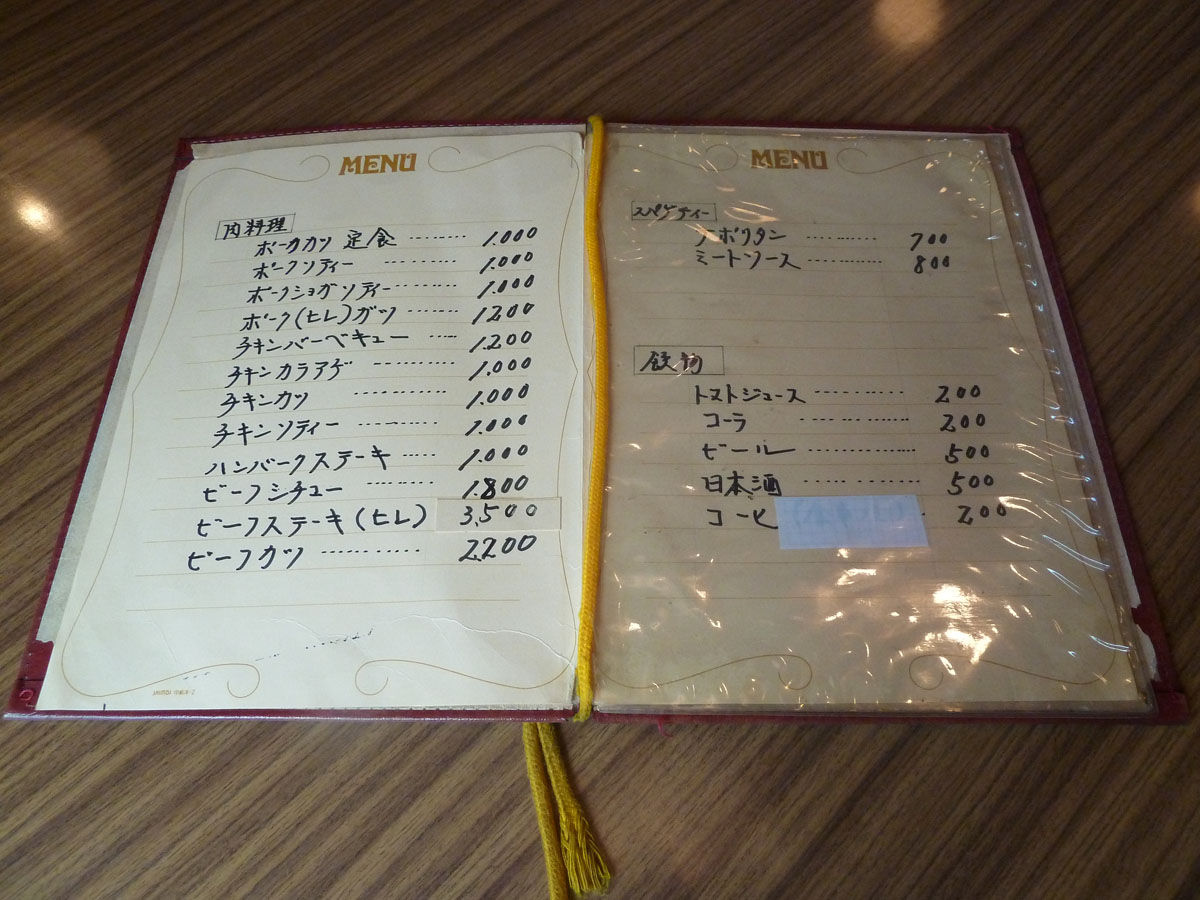 MENU
肉料理
ポークカツ 定食 ········ 1.000
ポークソティー ········ 1.000
ポークショガソティー ······· 1.000
ポーク(ヒレ)カツ ······· 1200
チキンバーベキュー ····· 1.200
チキンカラアゲ ·········· 1.000
チキンカツ ··········· 1.000
チキンソティー ·········· 1.000
ハンバークステーキ ····· 1.000
ビーフシチュー ········· 1.800
ビーフステーキ(ヒレ) 3,500
ビーフカツ ············ 2,200
MENU
スパゲティー
ナポリタン ·········· 700
ミートソース ··········· 800
飲物
トマトジュース ··········· 200
コーラ ·············· 200
ビール ·············· 500
日本酒 ············· 500
コーヒ 200